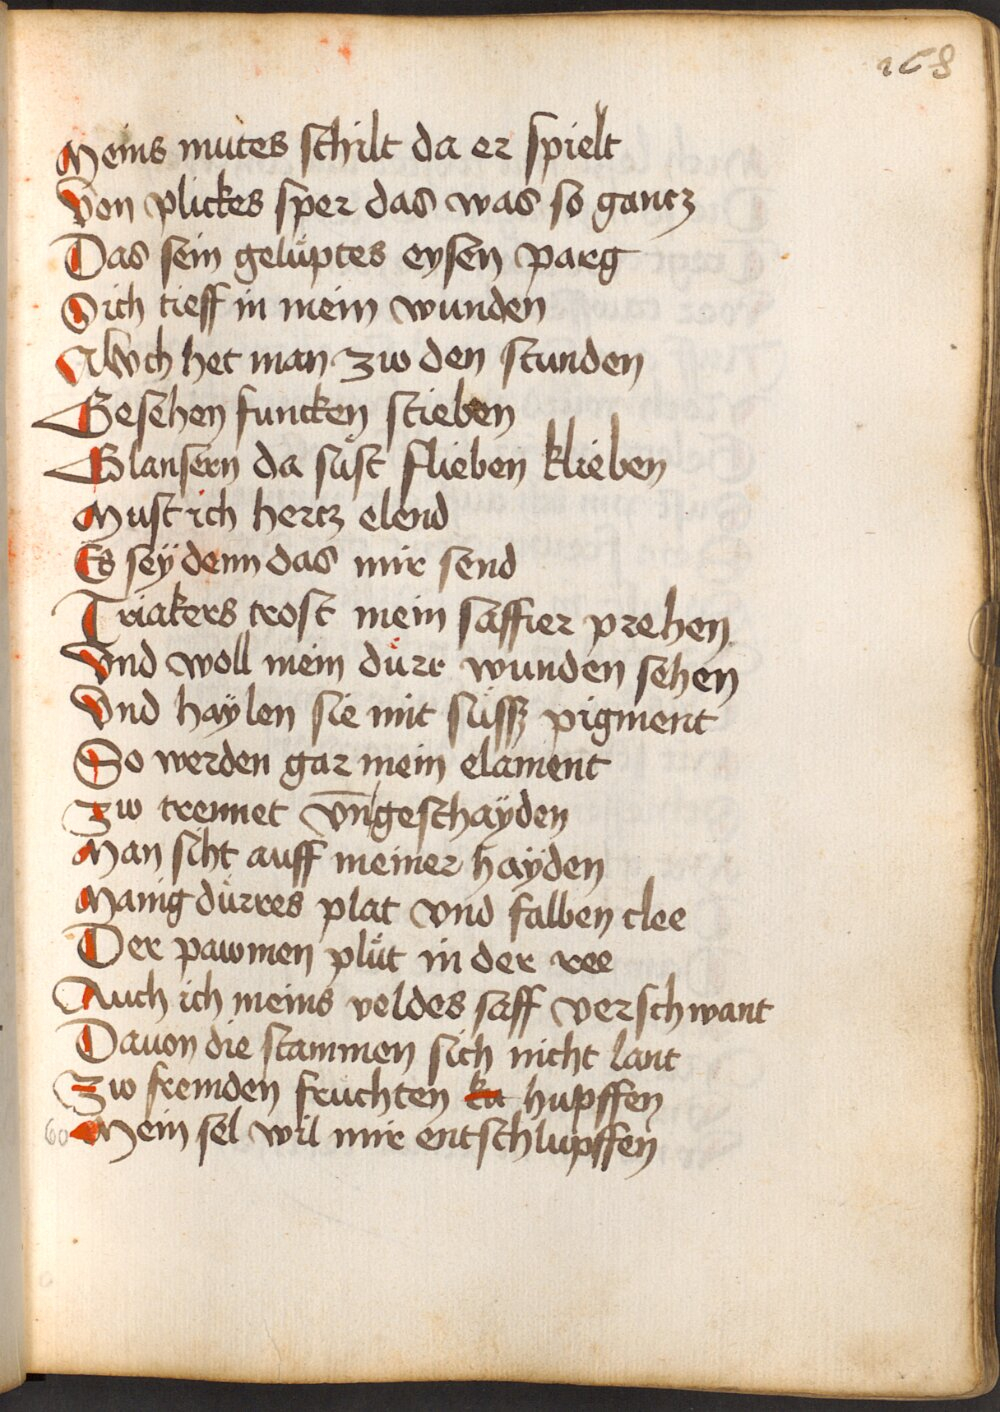 168
Meins mutes schilt da er spielt
Von plickes sper das was so gantz
Das sein gelüptes eysen parg
Sich tieff in mein wunden
Awch het man zw den stunden
Gesehen funcken stieben
Glansern da süst flieben klieben
Must ich hertz elend
Es seÿ denn das mir send
Triakers trost mein saffier prehen
Vnd woll mein dürr wunden sehen
Vnd haÿlen sie mit süssz pigment
So werden gar mein elament
Zw trennet vn̄geschaÿden
Man siht auff meiner haÿden
Manig dürres plat vnd falben clee
Der pawmen plüt in der ree
Auch ich meins veldes saff verschwant
Dauon die stammen sich nicht lant
Zw fremden fruchten hupffen
60 Mein sel wil mir entschlupffen